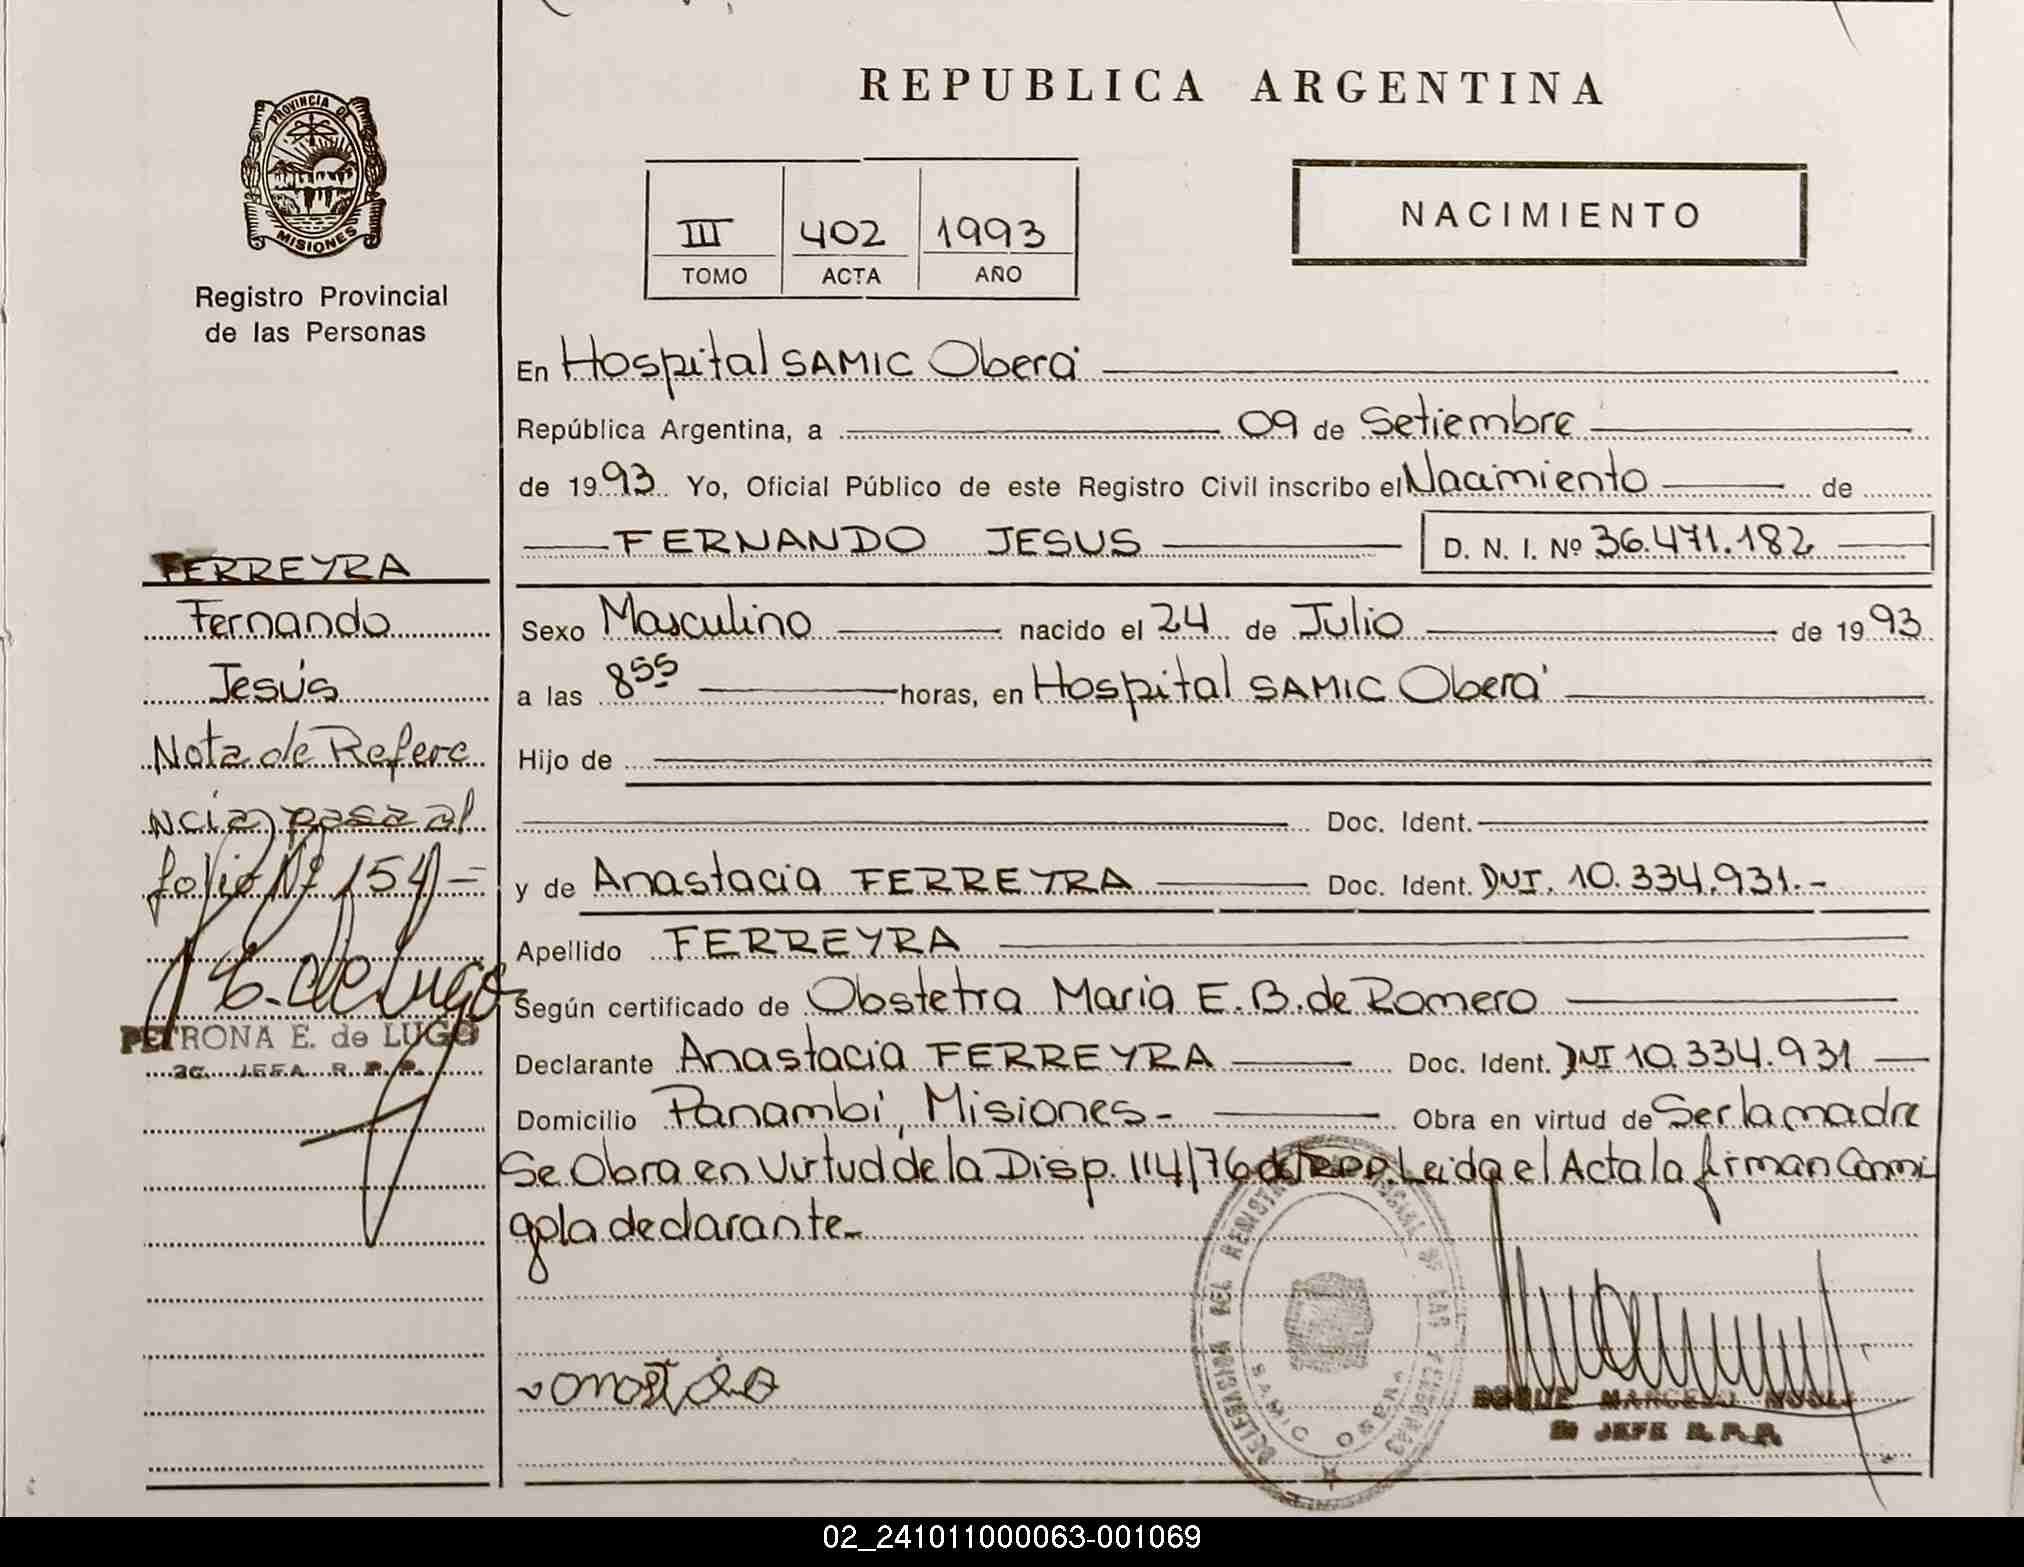 PROVINCIA DE
MISIONES
Registro Provincial
de las Personas
FERREYRA
Fernando
Jesús
Nota de Refere
ncia, pasa al
folio Nº 154)-
E. de Lugo
PETRONA E. de LUGO
JEFA R. P. P.
REPUBLICA ARGENTINA
III 402 1993
TOMO ACTA AÑO
NACIMIENTO
En Hospital SAMIC Oberá
República Argentina, a 09 de Setiembre
de 1993 Yo, Oficial Público de este Registro Civil inscribo el Nacimiento de
FERNANDO JESUS D. N. I. Nº 36.471.182
Sexo Masculino nacido el 24 de Julio de 1993
a las 8 55 horas, en Hospital SAMIC Oberá
Hijo de
Doc. Ident.
y de Anastacia FERREYRA Doc. Ident. DNI. 10.334.931.-
Apellido FERREYRA
Según certificado de Obstetra Maria E. B. de Romero
Declarante Anastacia FERREYRA Doc. Ident. DNI 10.334.931
Domicilio Panambí, Misiones- Obra en virtud de Ser la madre
Se Obra en Virtud de la Disp. 114/76 del RPP. Leida el Acta la firman Conmi
go la declarante-
DELEGACION DEL REGISTRO PROVINCIAL DE LAS PERSONAS
SAMIC OBERA
JEFE R. P. P.
02_241011000063-001069